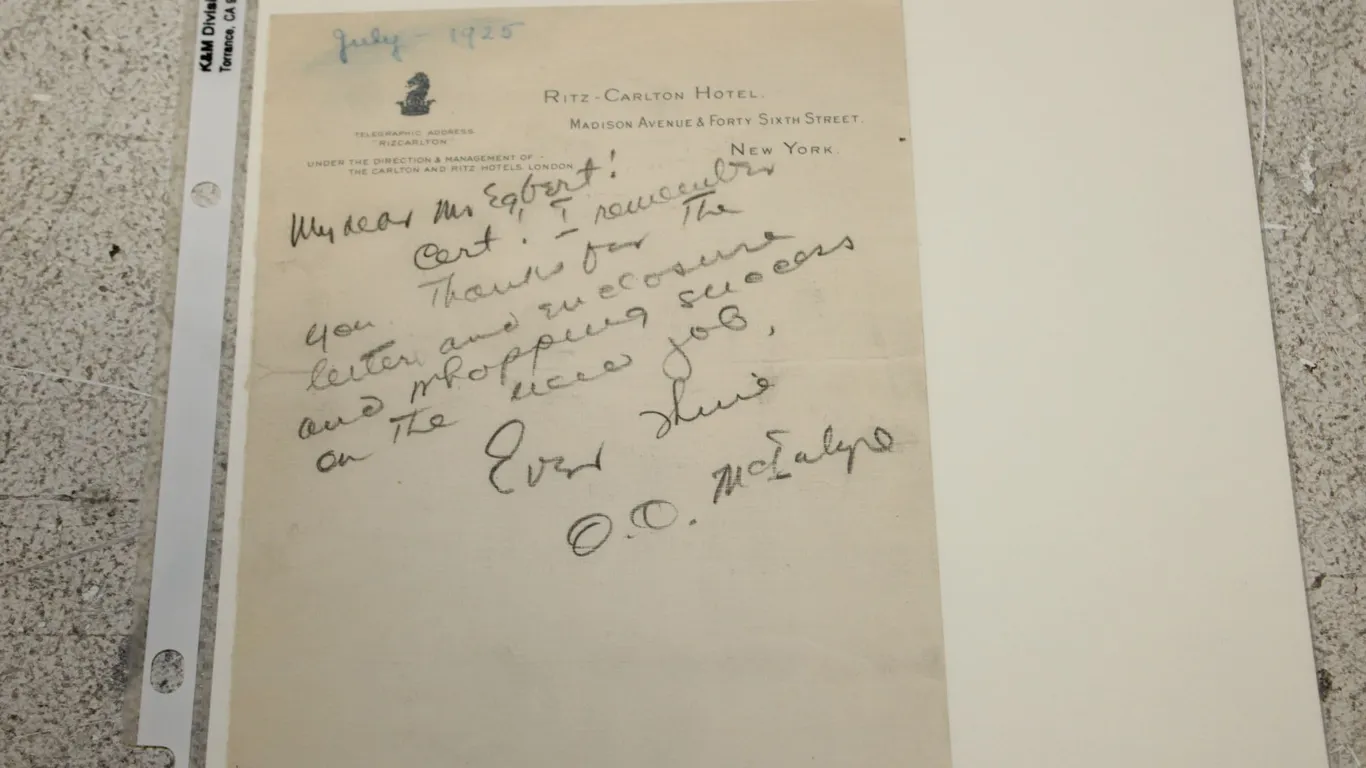 K&M Divisi
Torrance, CA 9
July - 1925
TELEGRAPHIC ADDRESS
"RIZCARLTON"
UNDER THE DIRECTION & MANAGEMENT OF -
THE CARLTON AND RITZ HOTELS, LONDON.
RITZ-CARLTON HOTEL.
MADISON AVENUE & FORTY SIXTH STREET.
NEW YORK.
My dear Mr Egbert!
Cert! I remember
you. Thanks for the
letter and enclosure
and whopping success
on the new job,
Ever thine
O.O. McIntyre